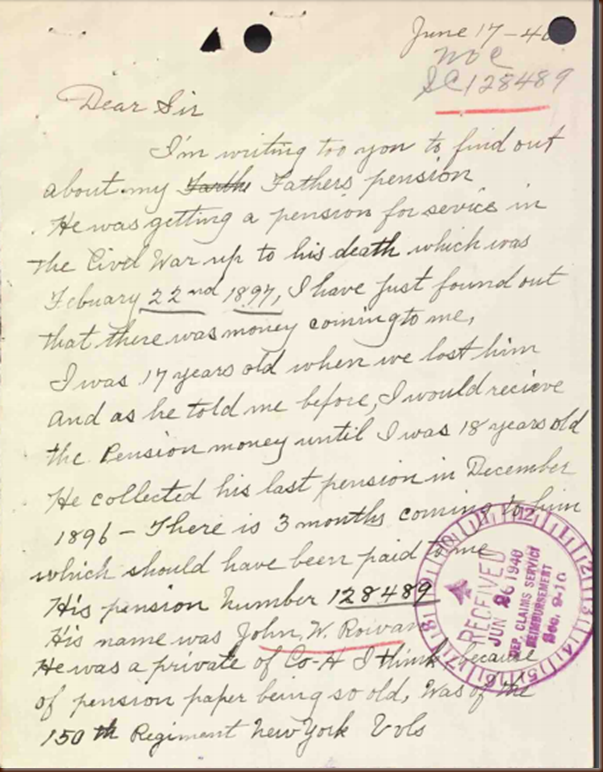 June 17-40
WOC
SC128489
Dear Sir
I'm writing too you to find out
about my Farthe Fathers pension
He was getting a pension for sevice in
the Civil War up to his death which was
Febuary 22nd 1897, I have just found out
that there was money coming to me,
I was 17 years old when we lost him
and as he told me before, I would recieve
the Pension money until I was 18 years old
He collected his last pension in December
1896 - There is 3 months coming to him
which should have been paid to me
His pension number 128489
His name was John W. Rowan
He was a private of Co-H I think because
of pension paper being so old, Was of the
150th Regiment New York Vols
RECEIVED
JUN 26 1940
DEP. CLAIMS SERVICE
REIMBURSEMENT
Sec. 9-10